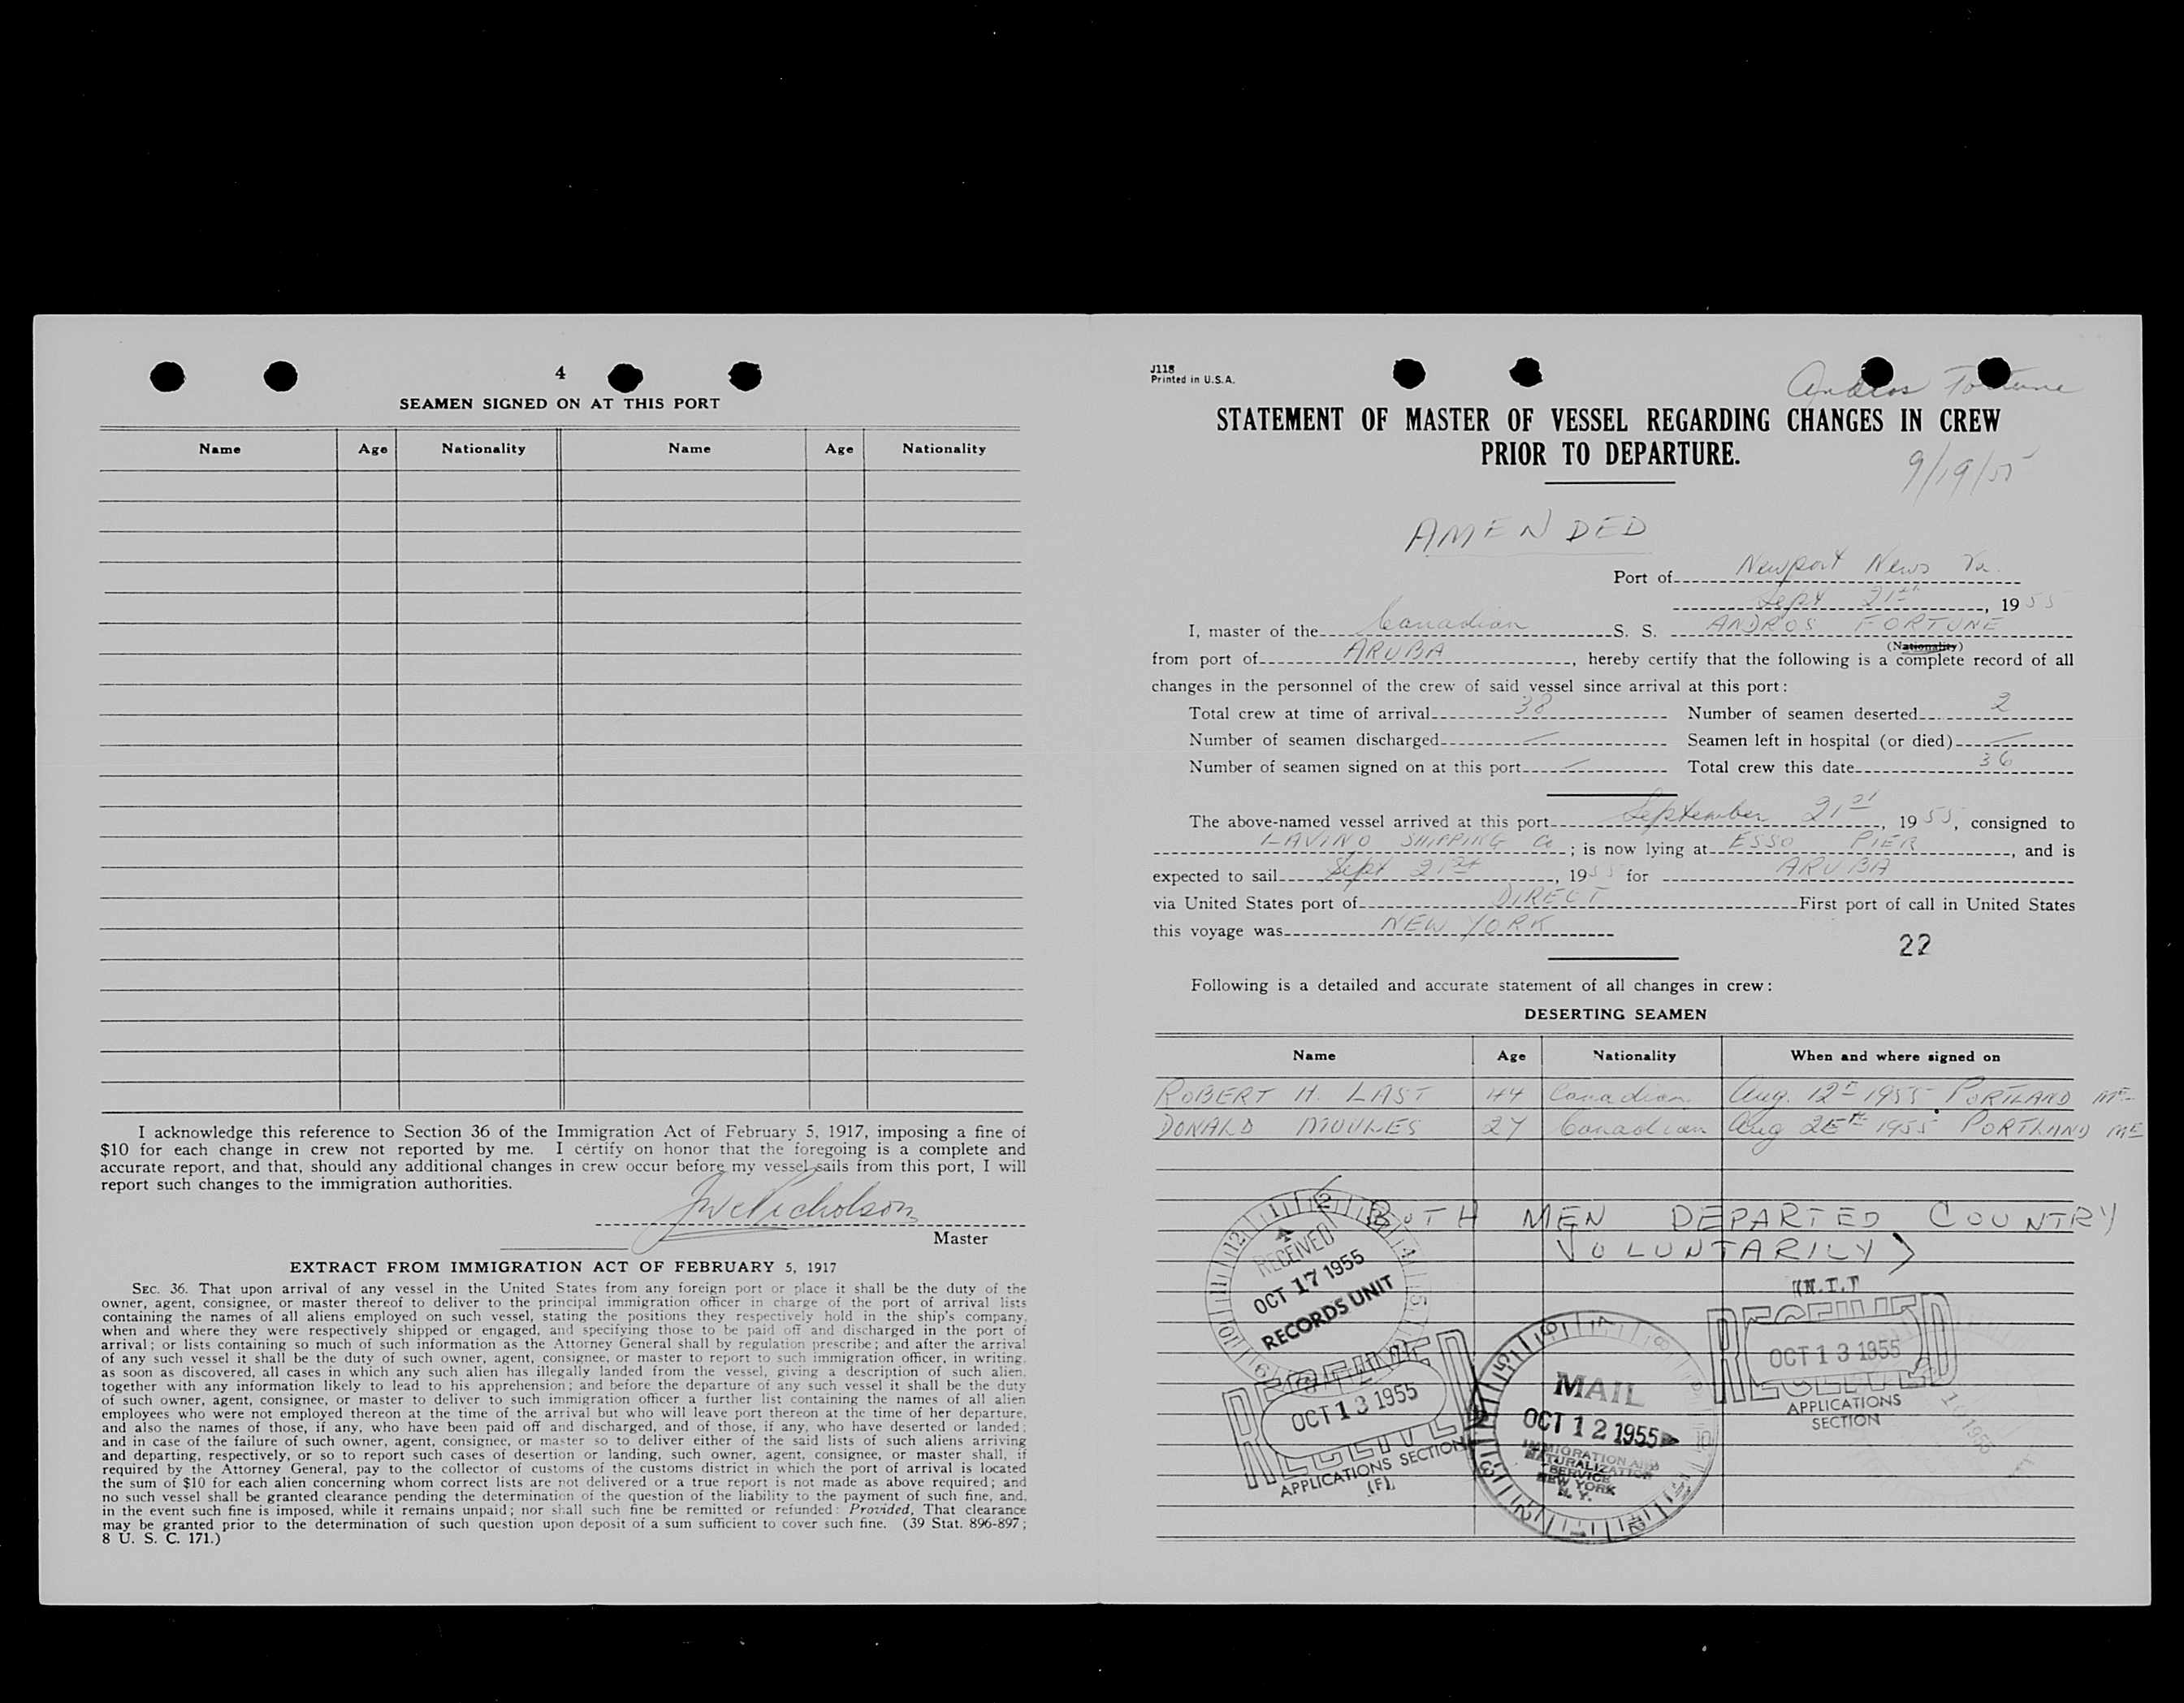 4
SEAMEN SIGNED ON AT THIS PORT
Name Age Nationality Name Age Nationality
I acknowledge this reference to Section 36 of the Immigration Act of February 5, 1917, imposing a fine of
$10 for each change in crew not reported by me. I certify on honor that the foregoing is a complete and
accurate report, and that, should any additional changes in crew occur before my vessel sails from this port, I will
report such changes to the immigration authorities.
Nicholson
Master
EXTRACT FROM IMMIGRATION ACT OF FEBRUARY 5, 1917
SEC. 36. That upon arrival of any vessel in the United States from any foreign port or place it shall be the duty of the
owner, agent, consignee, or master thereof to deliver to the principal immigration officer in charge of the port of arrival lists
containing the names of all aliens employed on such vessel, stating the positions they respectively hold in the ship's company,
when and where they were respectively shipped or engaged, and specifying those to be paid off and discharged in the port of
arrival; or lists containing so much of such information as the Attorney General shall by regulation prescribe; and after the arrival
of any such vessel it shall be the duty of such owner, agent, consignee, or master to report to such immigration officer, in writing,
as soon as discovered, all cases in which any such alien has illegally landed from the vessel, giving a description of such alien,
together with any information likely to lead to his apprehension; and before the departure of any such vessel it shall be the duty
of such owner, agent, consignee, or master to deliver to such immigration officer a further list containing the names of all alien
employees who were not employed thereon at the time of the arrival but who will leave port thereon at the time of her departure,
and also the names of those, if any, who have been paid off and discharged, and of those, if any, who have deserted or landed;
and in case of the failure of such owner, agent, consignee, or master so to deliver either of the said lists of such aliens arriving
and departing, respectively, or so to report such cases of desertion or landing, such owner, agent, consignee, or master shall, if
required by the Attorney General, pay to the collector of customs of the customs district in which the port of arrival is located
the sum of $10 for each alien concerning whom correct lists are not delivered or a true report is not made as above required; and
no such vessel shall be granted clearance pending the determination of the question of the liability to the payment of such fine, and,
in the event such fine is imposed, while it remains unpaid; nor shall such fine be remitted or refunded: Provided, That clearance
may be granted prior to the determination of such question upon deposit of a sum sufficient to cover such fine. (39 Stat. 896-897;
8 U. S. C. 171.)
J118
Printed in U.S.A.
Andros Fortune
STATEMENT OF MASTER OF VESSEL REGARDING CHANGES IN CREW
PRIOR TO DEPARTURE.
9/19/55
AMENDED
Port of Newport News Va.
Sept 21st, 1955
I, master of the Canadian S. S. ANDROS FORTUNE
(Nationality)
from port of ARUBA, hereby certify that the following is a complete record of all
changes in the personnel of the crew of said vessel since arrival at this port:
Total crew at time of arrival 38 Number of seamen deserted 2
Number of seamen discharged — Seamen left in hospital (or died) —
Number of seamen signed on at this port — Total crew this date 36
The above-named vessel arrived at this port September 21st, 1955, consigned to
LAVINO SHIPPING Co; is now lying at ESSO PIER, and is
expected to sail Sept 21st, 1955 for ARUBA
via United States port of DIRECT First port of call in United States
this voyage was NEW YORK
22
Following is a detailed and accurate statement of all changes in crew:
DESERTING SEAMEN
Name Age Nationality When and where signed on
ROBERT H. LAST 44 Canadian Aug. 12th 1955 PORTLAND ME
DONALD MOULES 27 Canadian Aug 25th 1955 PORTLAND ME
BOTH MEN DEPARTED COUNTRY
VOLUNTARILY
RECEIVED
OCT 17 1955
RECORDS UNIT
RECEIVED
OCT 13 1955
APPLICATIONS SECTION
(F)
MAIL
OCT 12 1955
IMMIGRATION AND
NATURALIZATION
SERVICE
NEW YORK
N. Y.
RECEIVED
OCT 13 1955
APPLICATIONS
SECTION